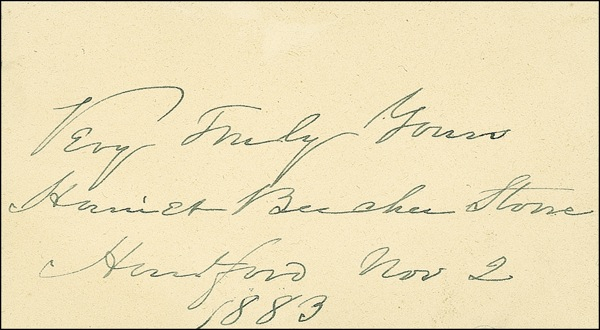 Very Truly Yours
Harriet Beecher Stowe
Hartford Nov 2
1883